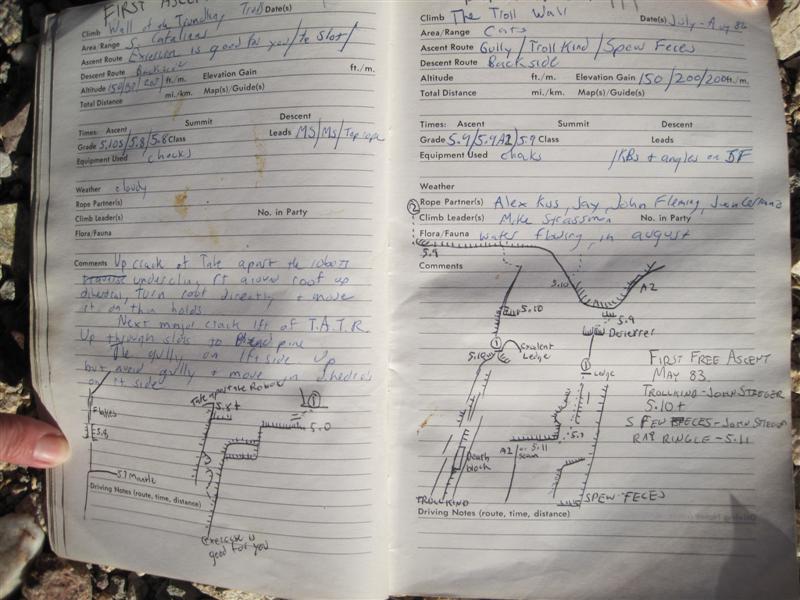 FIRST ASCENT
Climb Wall of the Date(s)
Area/Range S. Catalina
Ascent Route is good for you / the slot /
Descent Route Backside
Altitude ft./m. Elevation Gain ft./m.
Total Distance mi./km. Map(s)/Guide(s)
Times: Ascent Summit Descent
Grade 5.10 / 5.8 / 5.8 Class Leads MS / MS / Top rope
Equipment Used chocks
Weather cloudy
Rope Partner(s)
Climb Leader(s) No. in Party
Flora/Fauna
Comments Up crack of Take apart the
undercling, rt around roof up
dihedral, turn roof directly + move
rt on thin holds.
Next major crack lft of T.A.T.R.
Up through slots to pine
The gully, on lft side. Up
but avoid gully + move in dihedrals
on rt side
Flakes
5.8
5.7 Mantle
Take apart the
5.8+
①
5.0
Driving Notes (route, time, distance)
Exercise is
good for you
Climb The Troll Wall Date(s) July - Aug
Area/Range Cats
Ascent Route Gully / Troll Kind / Spew Feces
Descent Route Backside
Altitude ft./m. Elevation Gain 150 / 200 / 200 ft./m.
Total Distance mi./km. Map(s)/Guide(s)
Times: Ascent Summit Descent
Grade 5.9 / 5.9 A2 / 5.9 Class Leads
Equipment Used chocks / KBs + angles on
Weather
Rope Partner(s) Alex Jay, John Fleming,
Climb Leader(s) Mike No. in Party
Flora/Fauna water flowing in august
②
5.9
Comments
5.10
A2
5.9
5.10
Excalent
Ledge
①
5.10
①
Ledge
FIRST FREE ASCENT
MAY 83.
TROLLKIND - JOHN STEIGER
5.10+
SPEW FECES - JOHN STEIGER
RAY RINGLE - 5.11
Death
block
A2
or 5.11
seam
5.7
TROLLKIND
SPEW FECES
Driving Notes (route, time, distance)